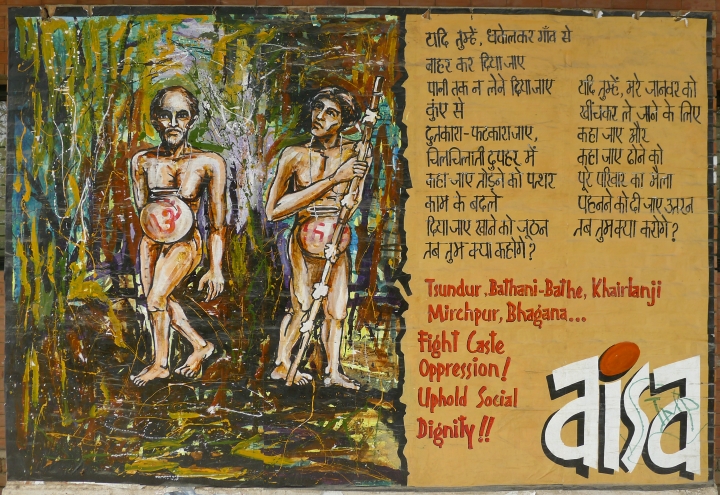 यदि तुम्हें, धकेलकर गाँव से
बाहर कर दिया जाए
पानी तक न लेने दिया जाए
कुंए से
दुतकारा-फटकारा जाए,
चिलचिलाती दुपहर में
कहा जाए तोड़ने को पत्थर
काम के बदले
दिया जाए खाने को जूठन
तब तुम क्या कहोगे?
यदि तुम्हें, मरे जानवर को
खींचकर ले जाने के लिए
कहा जाए और
कहा जाए ढोने को
पूरे परिवार का मैला
पहनने को दी जाए उतरन
तब तुम क्या करोगे?
Tsundur, Bathani-Bathe, Khairlanji
Mirchpur, Bhagana...
Fight Caste
Oppression!
Uphold Social
Dignity!!
aisa